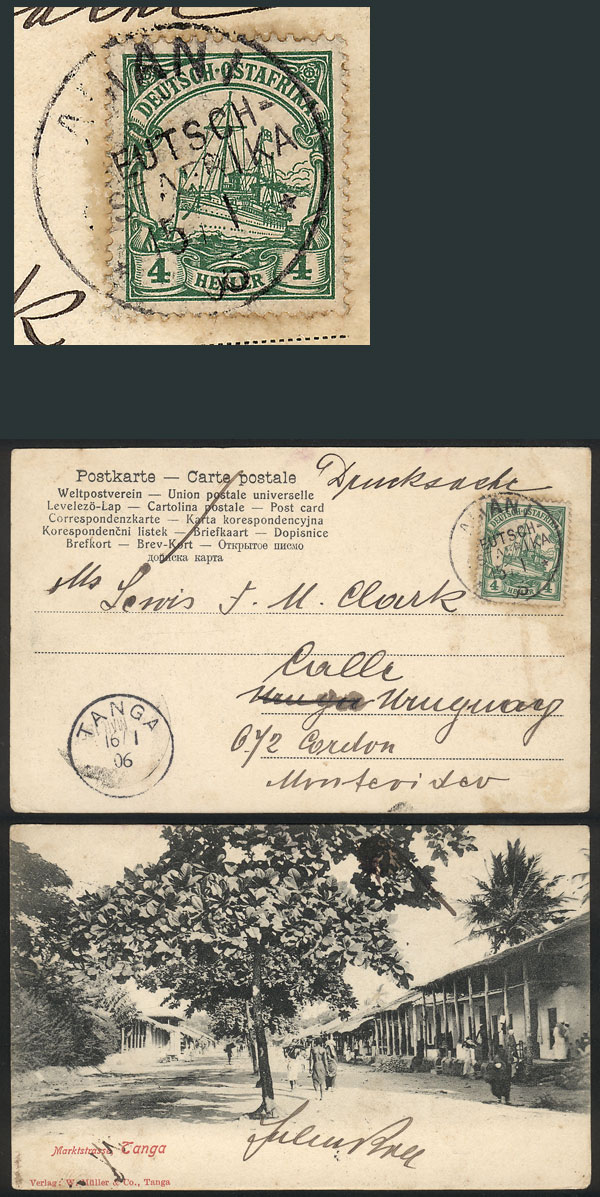 AMANI
DEUTSCH-OSTAFRIKA
EUTSCH-
AFRIKA
15 1
4 HELLER 4
Postkarte — Carte postale
Drucksache
Weltpostverein — Union postale universelle
Levelezö-Lap — Cartolina postale — Post card
Correspondenzkarte — Karta korespondencyjna
Korespondenční listek — Briefkaart — Dopisnice
Brefkort — Brev-Kort — Открытое письмо
дописна карта
AMANI
DEUTSCH-OSTAFRIKA
EUTSCH-
AFRIKA
15 1
4 HELLER 4
Ms Lewis F. M. Clark
Calle
Uruguay
672 Cordon
Montevideo
TANGA
16 1
06
Marktstrasse, Tanga
Verlag: W. Müller & Co., Tanga